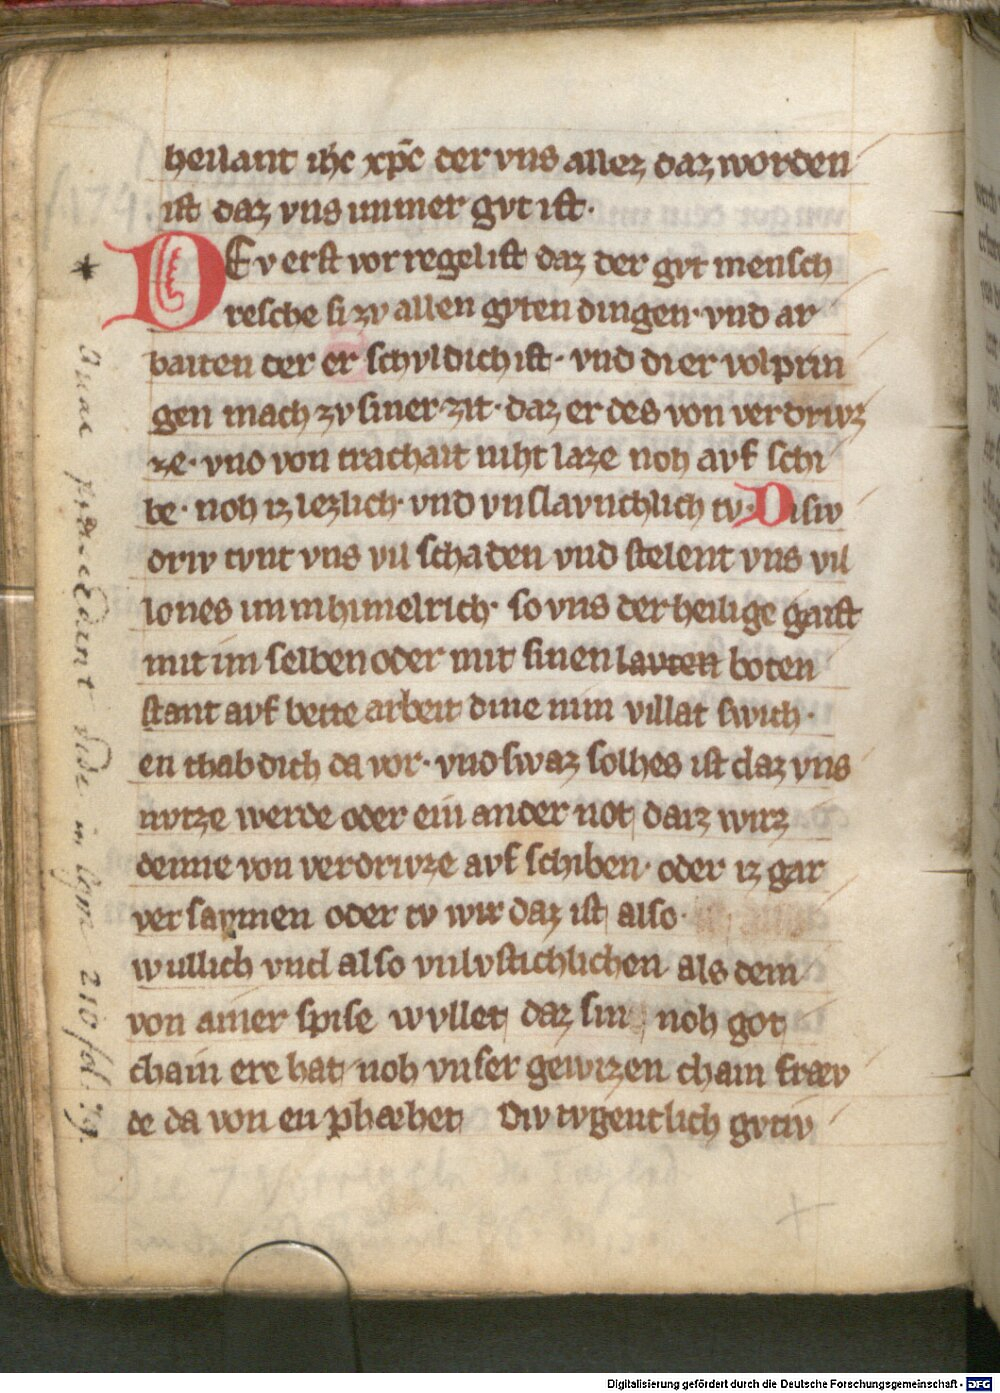 heilant ihc xp̄c der vns allez daz worden
ist daz vns immer gvt ist·
DEv erst vorregel ist daz der gvt mensch
resche si zv allen gvten dingen· vnd ar
baiten der er schvldich ist· vnd di er volprin
gen mach zv siner zit· daz er des von verdrivz
ze· vnd von trachait niht laze noh avf schi
be· noh iz lezlich· vnd vnslavnichlich tv· Disiv
driv tvnt vns vil schaden vnd stelent vns vil
lones im himelrich· so vns der heilige gaist
mit im selben oder mit sinen lavten boten
stant avf bette arbeit dine nim villat swich·
en thab dich da vor· vnd swaz solhes ist daz vns
nvtze werde oder ein ander not daz wirz
denne von verdrivze avf schiben· oder iz gar
versavmen oder tv wir daz ist also·
wullich vnd also vnlvstichlichen als dem
von ainer spise wvllet daz sin noh got
chain ere hat noh vnser gewizen chain fræv
de da von enphæhet Div tvgentlich gvtiv
Quae praecedunt vide in
210 fol.
Die 7 Vorregeln der Tugend
Digitalisierung gefördert durch die Deutsche Forschungsgemeinschaft - DFG